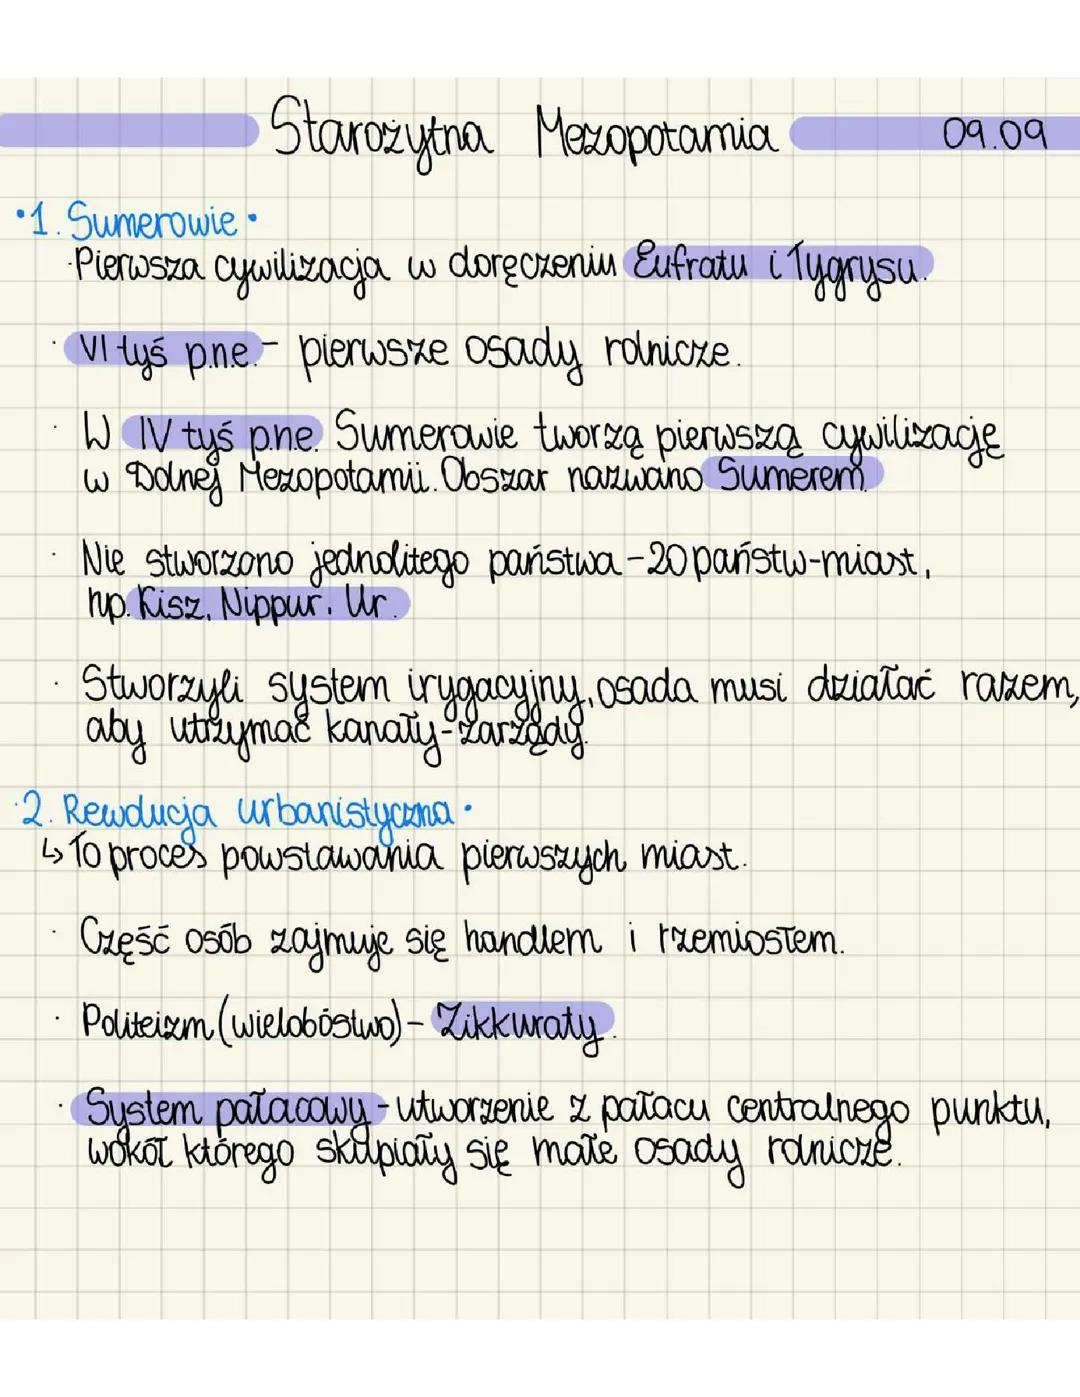 Starożytna Mezopotamia 09.09
•1. Sumerowie•
·Pierwsza cywilizacja w doręczeniu Eufratu i Tygrysu.
· VI tyś p.n.e.- pierwsze osady rolnicze.
· W IV tyś p.n.e. Sumerowie tworzą pierwszą cywilizację
w Dolnej Mezopotamii. Obszar nazwano Sumerem.
· Nie stworzono jednolitego państwa-20 państw-miast,
np. Kisz, Nippur, Ur.
· Stworzyli system irygacyjny, osada musi działać razem,
aby utrzymać kanały-zarządy.
·2. Rewolucja urbanistyczna•
↳ To proces powstawania pierwszych miast.
· Część osób zajmuje się handlem i rzemiosłem.
· Politeizm (wielobóstwo)- Zikkuraty.
· System pałacowy-utworzenie z pałacu centralnego punktu,
wokół którego skupiały się małe osady rolnicze.